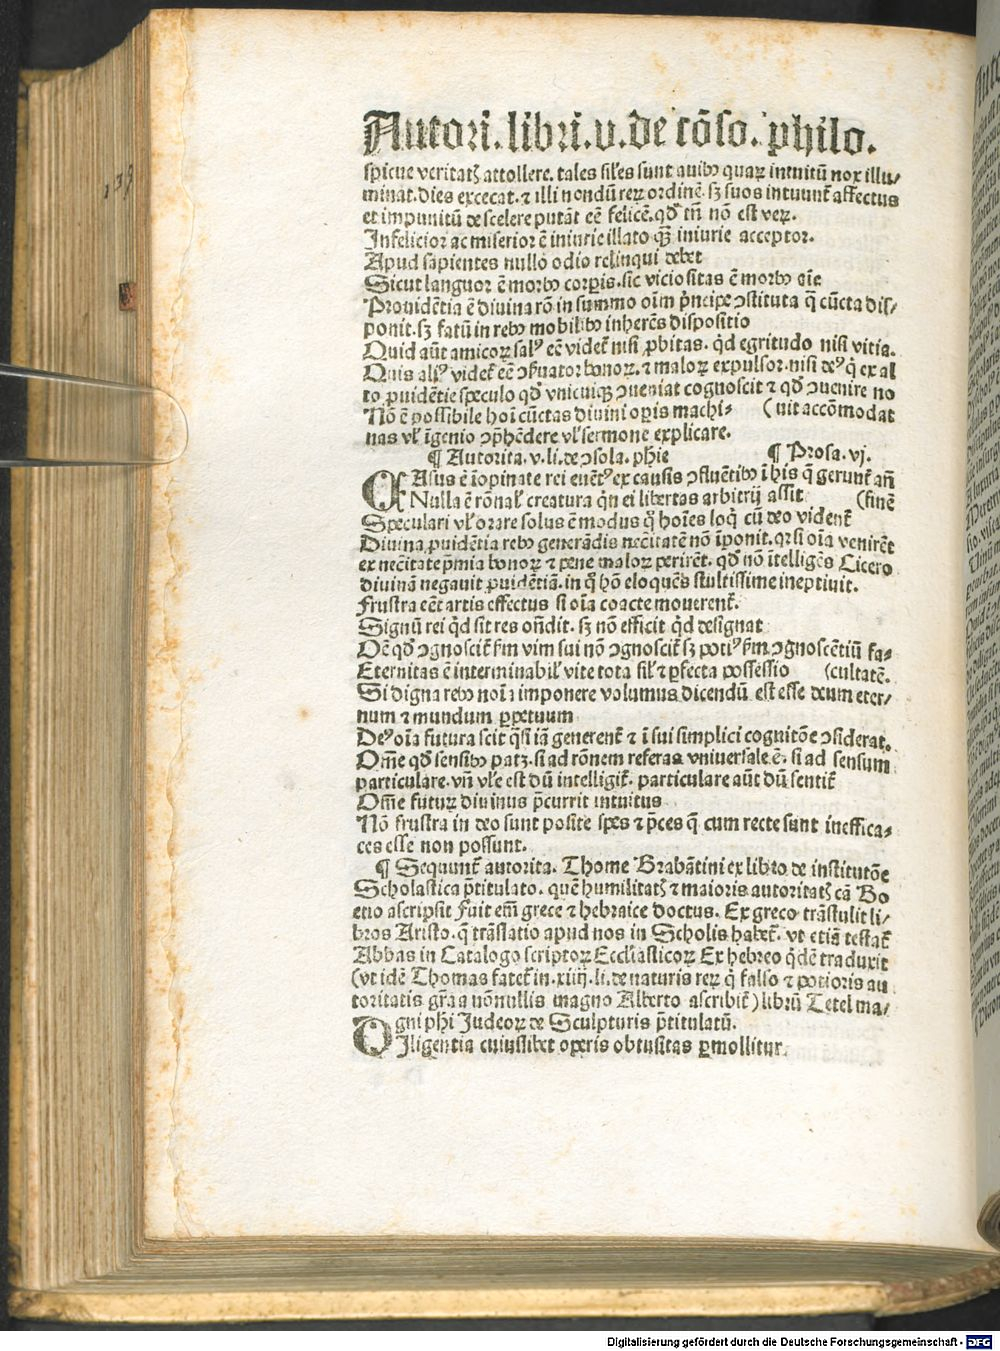 Autori. libri. v. de cōso. philo.
spicue veritatꝭ attollere. tales siles sunt auibꝰ quaꝝ intuitū nox illu⸗
minat. dies excecat. ⁊ illi nondū reꝝ ordinē. sꝫ suos intuunt̃ affectus
et impunitū de scelere putāt eē felicē. qđ tñ nō est veꝝ.
Infelicior ac miserior ē iniurie illato qꝫ̃ iniurie acceptor.
Apud sapientes nullo odio relinqui debet
Sicut languor ē morbꝰ corꝑis. sic viciositas ē morbꝰ aīe
Prouidētia ē diuina rō in summo oīm p̄ncipe ꝯstituta q̄ cūcta dis⸗
ponit. sꝫ fatū in rebꝰ mobilibꝰ inherēs dispositio
Quid aūt amicoꝝ salꝰ eē videt̃ nisi ꝓbitas. qđ egritudo nisi vitia.
Quis aliꝰ videt̃ eē ꝯẜuator bonoꝝ. ⁊ maloꝝ expulsor. nisi deꝰ q̇ ex al
to ꝓuidētie speculo qđ vnicuiqꝫ ꝯueniat cognoscit ⁊ qđ ꝯuenire no
Nō ē possibile hoī cūctas diuini oꝑis machi⸗ (uit accōmodat
nas vł īgenio ꝯp̄hēdere vł sermone explicare.
¶ Autorita. v. li. de ꝯsola. phīe ¶ Prosa. vj.
CAsus ē īopinate rei euētꝰ ex causis ꝯfluētibꝰ ī his q̄ gerunt̃ añ
Nulla ē rōnał creatura qͥn ei libertas arbitrij assit (finē
Speculari vł orare solus ē modus q̊ hoīes loqͥ cū deo vident̃
Diuina ꝓuidētia rebꝰ generādis necītatē nō īponit. qꝛ si oīa venirēt
ex necītate p̄mia bonoꝝ ⁊ pene maloꝝ perirēt. qđ nō ītelligēs Cicero
diuinā negauit ꝓuidētiā. in q̊ hō eloquēs stultissime ineptiuit.
Frustra eēt artis effectus si oīa coacte mouerent̃.
Signū rei qđ sit res oñdit. sꝫ nō efficit qđ designat
Oē qđ ꝯgnoscit̃ ẜm vim sui nō ꝯgnoscit̃ sꝫ potiꝰ ẜm ꝯgnoscētiū fa⸗
Eternitas ē interminabił vite tota sił ⁊ ꝑfecta possessio (cultatē.
Si digna rebꝰ noīa imponere volumus dicendū est esse deum eter⸗
num ⁊ mundum ꝑpetuum
Deꝰ oīa futura scit qͣsi iā generent̃ ⁊ ī sui simplici cognitōe ꝯsiderat.
Om̄e qđ sensibꝰ patꝫ. si ad rōnem referas vniuersale ē. si ad sensum
particulare. vñ vłe est dū intelligit̃. particulare aūt dū sentit̃
Om̄e futuꝝ diuinus p̄currit intuitus
Nō frustra in deo sunt posite spes ⁊ p̄ces q̄ cum recte sunt ineffica⸗
ces esse non possunt.
¶ Sequunt̃ autorita. Thome Brabātini ex libro de institutōe
Scholastica p̄titulato. quē humilitatꝭ ⁊ maioris autoritatꝭ cā Bo
etio ascripsit Fuit em̄ grece ⁊ hebraice doctus. Ex greco trāstulit li⸗
bros Aristo. q̄ trāslatio apud nos in Scholis habet̃. vt etiā testat̃
Abbas in Catalogo scriptoꝝ Eccl̃iasticoꝝ Ex hebreo qͥdē traduxit
(vt idē Thomas fatet̃ in. xiiij. li. de naturis reꝝ q̄ falso ⁊ potioris au
toritatis grā a nōnullis magno Alberto ascribit̃) librū Tetel ma⸗
gni phi Judeoꝝ de Sculpturis p̄titulatū.
DIligentia cuiuslibet operis obtusitas ꝑmollitur.
Digitalisierung gefördert durch die Deutsche Forschungsgemeinschaft - DFG